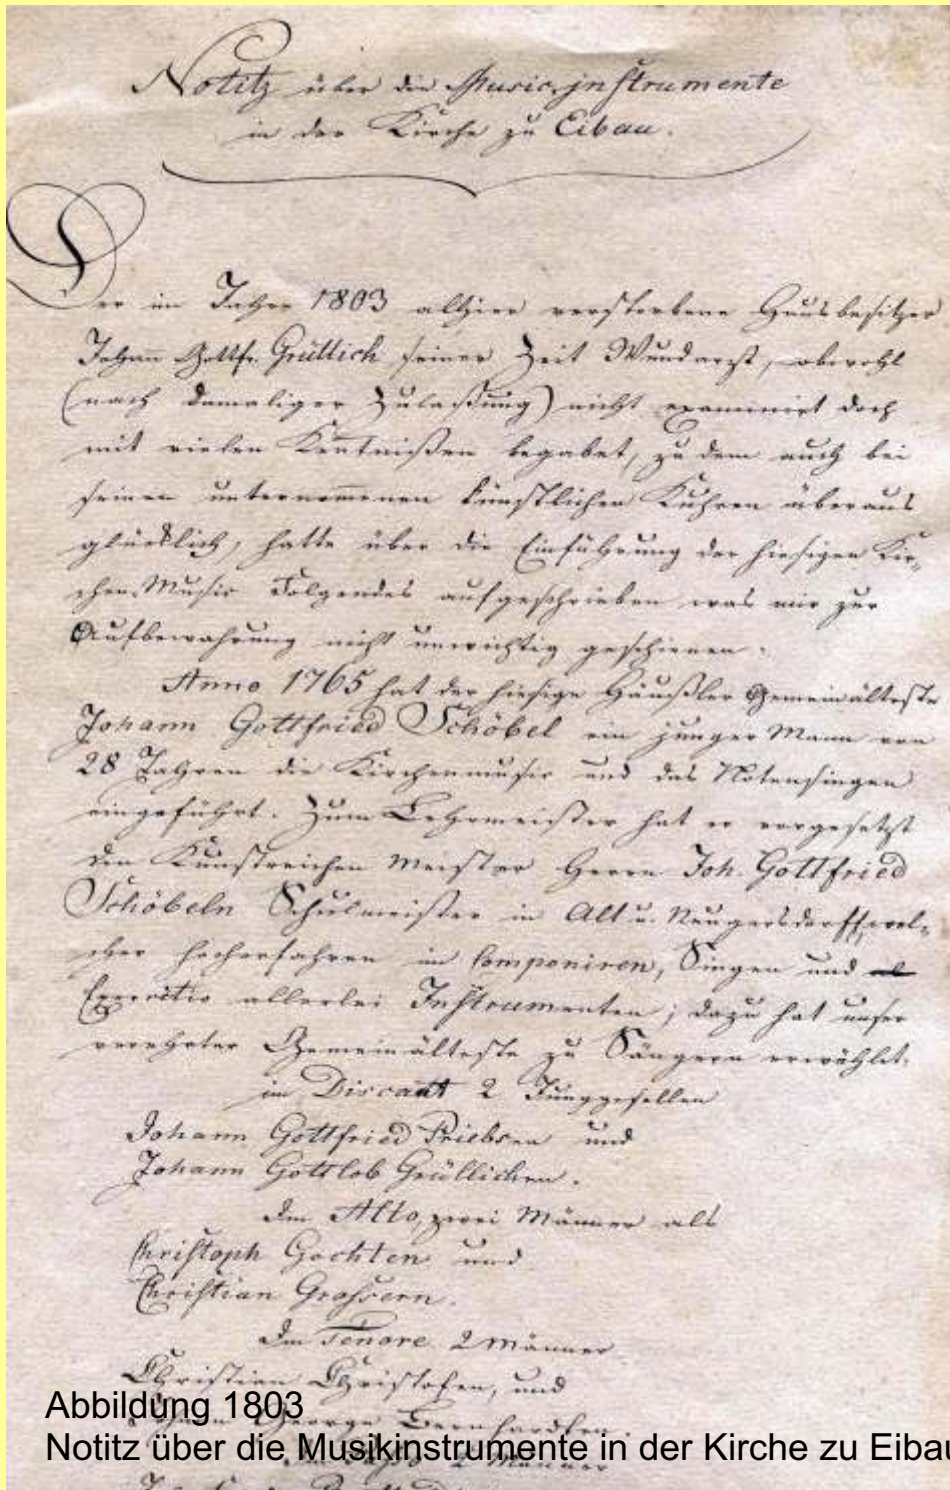 Notitz über die Music-jnstrumente
in der Kirche zu Eibau.
Der im Jahre 1803 allhier verstorbene Hausbesitzer
Johan Gottfr. Grüllich seiner Zeit Wundarzt, obwohl
(nach damaliger Zulaßung) nicht examinirt doch
mit vielen Kentnißen begabet, zu dem auch bei
seinen unternommenen künstlichen Kuhren überaus
glücklich, hatte über die Einführung der hiesigen Kir-
chen-Music Folgendes aufgeschrieben was mir zur
Aufbewahrung nicht unwichtig geschienen.
Anno 1765 hat der hiesige Häußler Gemeinälteste
Johann Gottfried Schöbel ein junger Mann von
28 Jahren die Kirchenmusic und das Notensingen
eingeführt. Zum Lehrmeister hat er vorgesetzt
den Kunstreichen Meister Herrn Joh. Gottfried
Schöbeln Schulmeister in Alt u. Neugersdorff, wel-
cher hocherfahren im Componiren, Singen und
Exercitio allerlei Instrumenten; dazu hat unser
verehrter Gemeinälteste zu Sängern erwählet.
im Discant 2 Junggesellen
Johann Gottfried Priebsen und
Johann Gottlob Grüllichen.
Im Alto, zwei Männer als
Christoph Gochten und
Christian Grossern.
Im Tenore 2 Männer
Christian Christofen, und
George Bernhardten
2 Männer
Abbildung 1803
Notitz über die Musikinstrumente in der Kirche zu Eibau